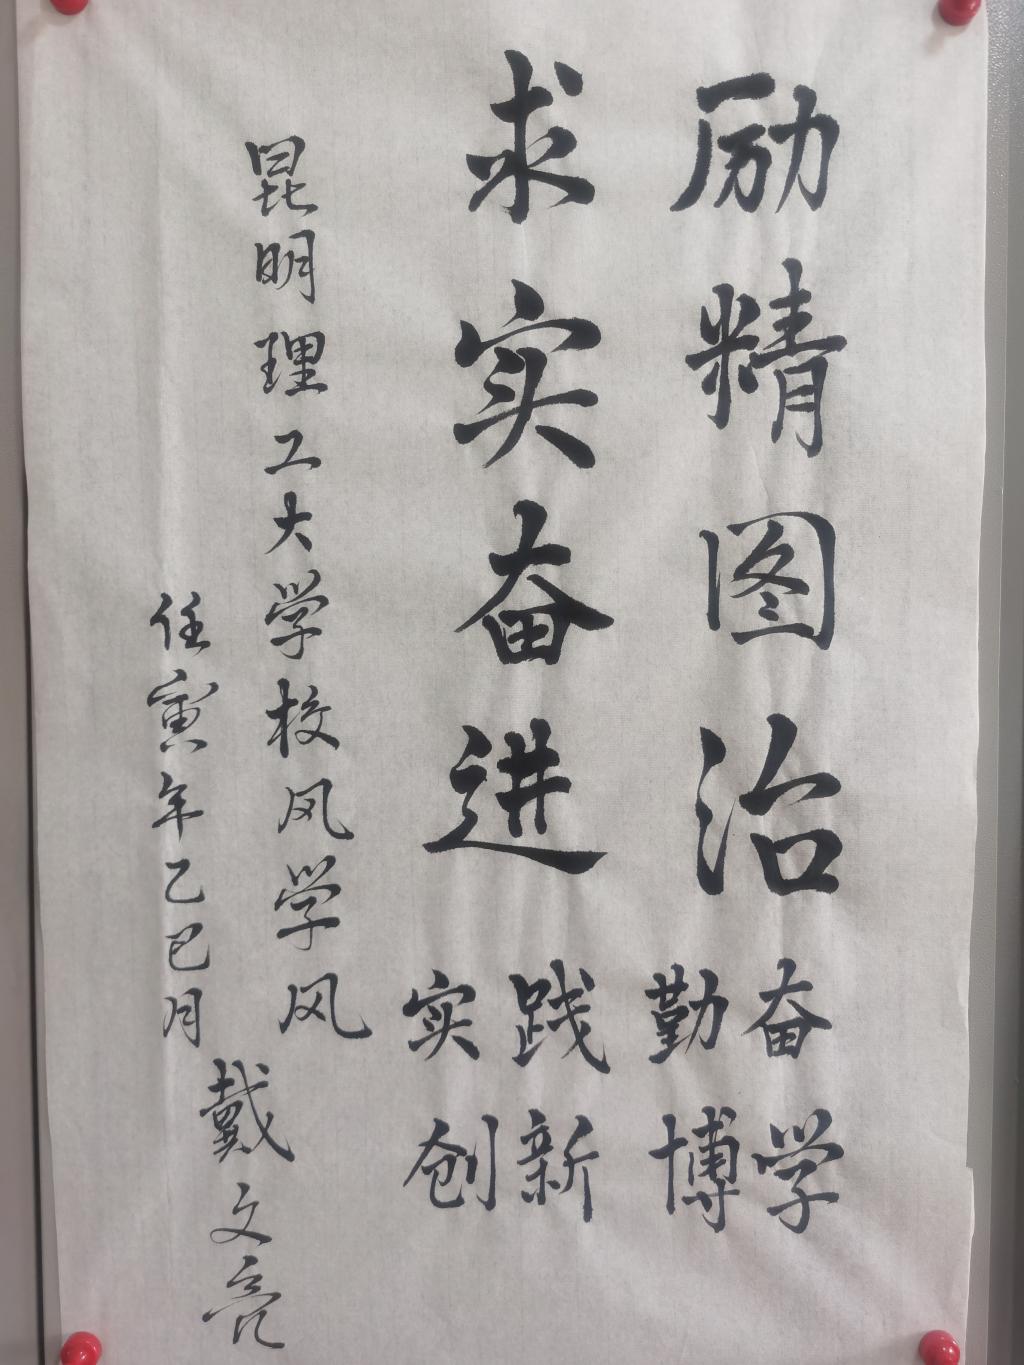 励精图治
勤奋
博学
求实奋进
实践
创新
昆明理工大学校风学风
任寅年乙巳月
戴文亮